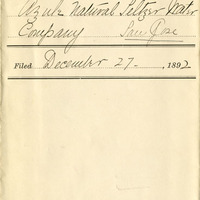 Azule Natural Seltzer Water
Company San Jose
Filed December 27, 1892